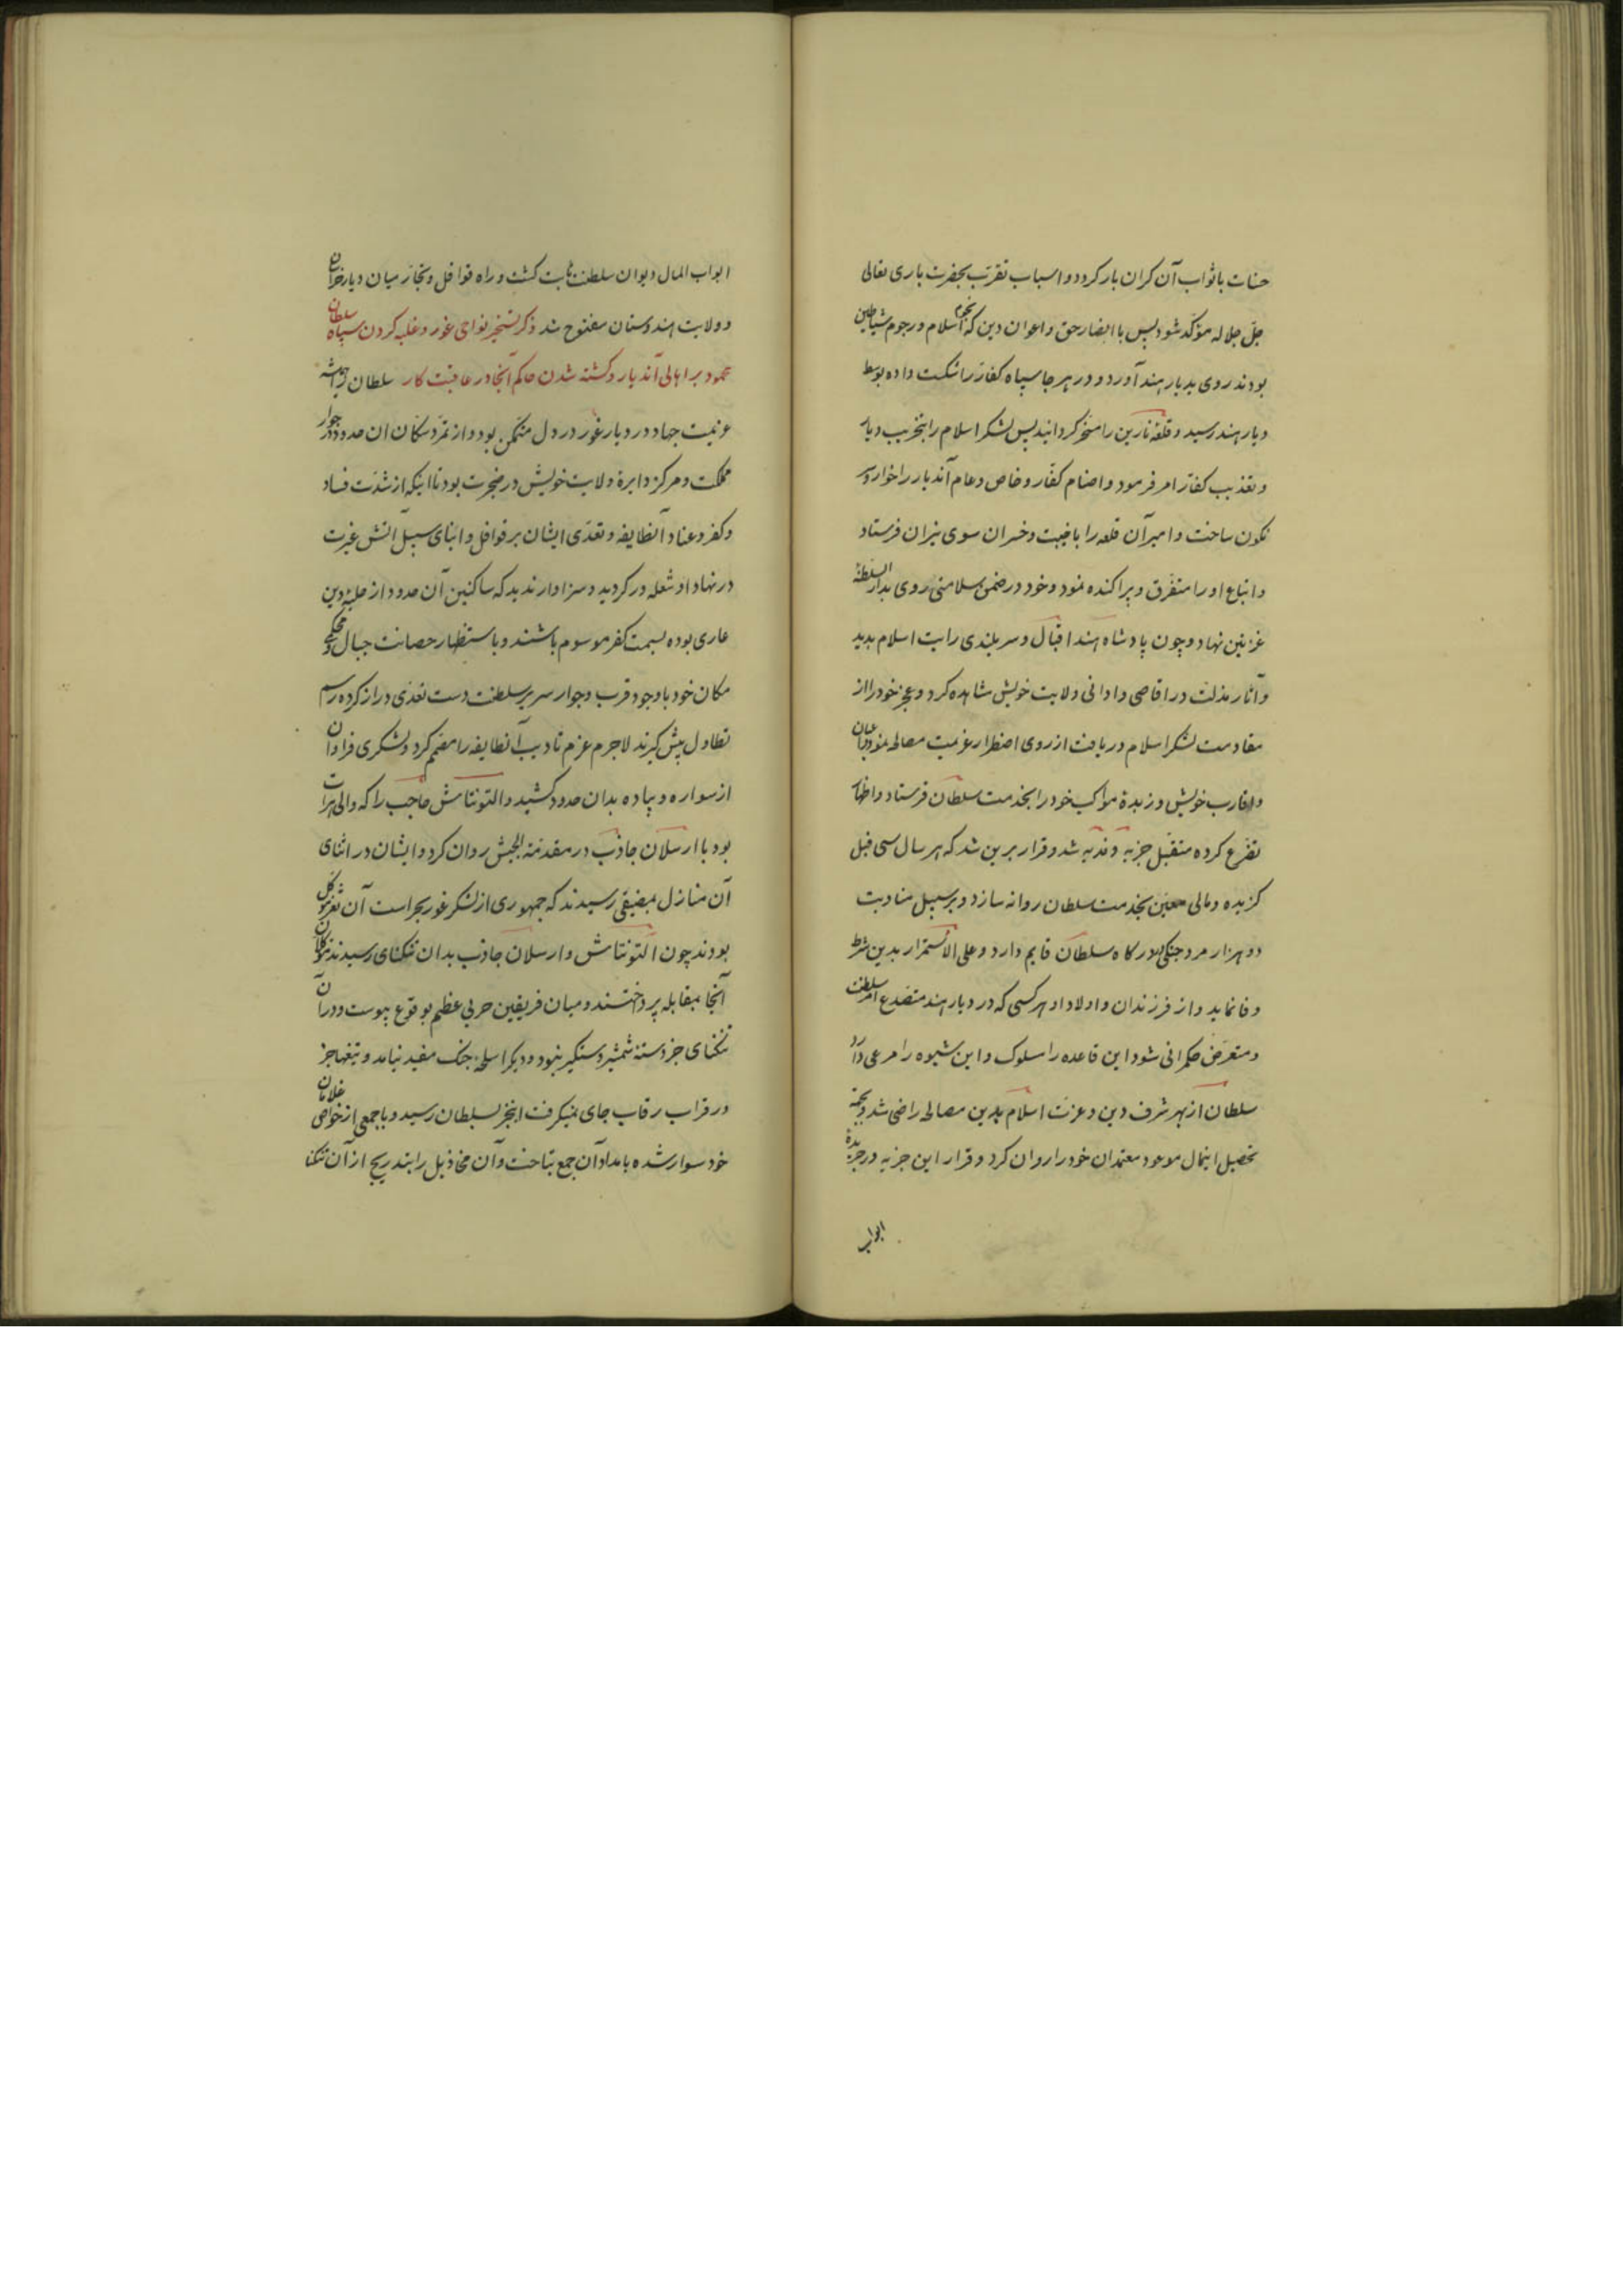 حسنات باثواب آن کران بار کردد و اسباب تقرّب بحضرت باری تعالی
جلّ جلاله مؤکد شود پس با انصار حق و اعوان دین که انجم اسلام و رجوم شیاطین
بودند روی بدیار هند آورد و در هر جا سپاه کفار را شکست داده بوسط
دیار هند رسید و قلعه نارین را مسخر کردانید پس لشکر اسلام را بتخریب دیار
و تعذیب کفار امر فرمود و اصنام کفار و خاص و عام آندیار را خوار و سر
نکون ساخت و امیر آن قلعه را با خیبت و خسران سوی نیران فرستاد
و اتباع او را متفرق و پراکنده نمود و خود در ضمن سلامتی روی بدار السلطنة
غزنین نهاد و چون پادشاه هند اقبال و سربلندی رایت اسلام بدید
و آثار مذلت در اقاصی و ادانی ولایت خویش مشاهده کرد و عجز خود را از
مقاومت لشکر اسلام دریافت از روی اضطرار عزیمت مصالحه نمود و اعیان
و اقارب خویش و زبدة مواکب خود را بخدمت سلطان فرستاد و اظهار
تضرع کرده متقبل جزیه و فدیه شد و قرار برین شد که هر سال سی فیل
کزیده و مالی معین بخدمت سلطان روانه سازد و بر سبیل مناوبت
دو هزار مرد جنکی بدرکاه سلطان قایم دارد و علی الاستمرار بدین شرط
وفا نماید و از فرزندان و اولاد او هر کسی که در دیار هند متصدع امر سلطنت
و متعرض حکمرانی شود این قاعده را سلوک و این شیوه را مرعی دارد
سلطان از بهر شرف دین و عزت اسلام بدین مصالحه راضی شد و بجهة
تحصیل اینمال موعود معتمدان خود را روان کرد و قرار این جزیه در جریدۀ
ابواب
ابواب المال دیوان سلطنت ثابت کشت و راه قوافل و تجار میان دیار خراسان
و ولایت هندوستان مفتوح شد ذکر تسخیر نواحی غور و غلبه کردن سپاه سلطان
محمود بر اهالی آندیار و کشته شدن حاکم آنجا در عاقبت کار سلطان را همیشه
عزیمت جهاد در دیار غور در دل متمکن بود و از تمرد سکان ان حدود در جوار
مملکت و مرکز دایرۀ ولایت خویش در ضجرت بود تا اینکه از شدت فساد
و کفر و عناد آنطایفه و تعدی ایشان بر قوافل و ابنای سبیل آتش غیرت
در نهاد او شعله ور کردید و سزاوار ندید که ساکنین آن حدود از حلیۀ دین
عاری بوده بسمت کفر موسوم باشند و باستظهار حصانت جبال و محکمی
مکان خود با وجود قرب و جوار سریر سلطنت دست تعدی دراز کرده رسم
تطاول پیش کیرند لاجرم عزم تادیب آنطایفه را مصمم کرد و لشکری فراوان
از سواره و پیاده بدان حدود کشید و التونتاش حاجب را که والی هرات
بود با ارسلان جاذب در مقدمة الجیش روان کرد و ایشان در اثنای
آن منازل بمضیقی رسیدند که جمهوری از لشکر غور بحراست آن ثغر موکل
بودند چون التونتاش و ارسلان جاذب بدان تنکنای رسیدند موکلان
آنجا بمقابله پرداختند و میان فریقین حربی عظیم بوقوع پیوست و در آن
تنکنای جز دستۀ شمشیر دستکیر نبود و دیکر اسلحه جنک مفید نیامد و تیغها جز
در قراب رقاب جای نمیکرفت اینخبر بسلطان رسید و با جمعی از خواص غلامان
خود سوار شده بامداد آن جمع بتاخت و آن مخاذیل را بتدریج از آن تنکنا